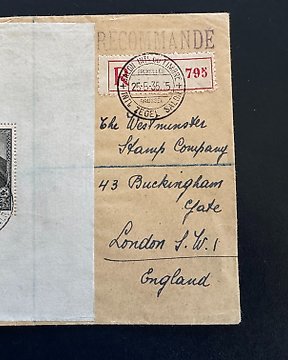 RECOMMANDE
R
795
26.5.35.15
The Westminster
Stamp Company
43 Buckingham
Gate
London S.W.1
England